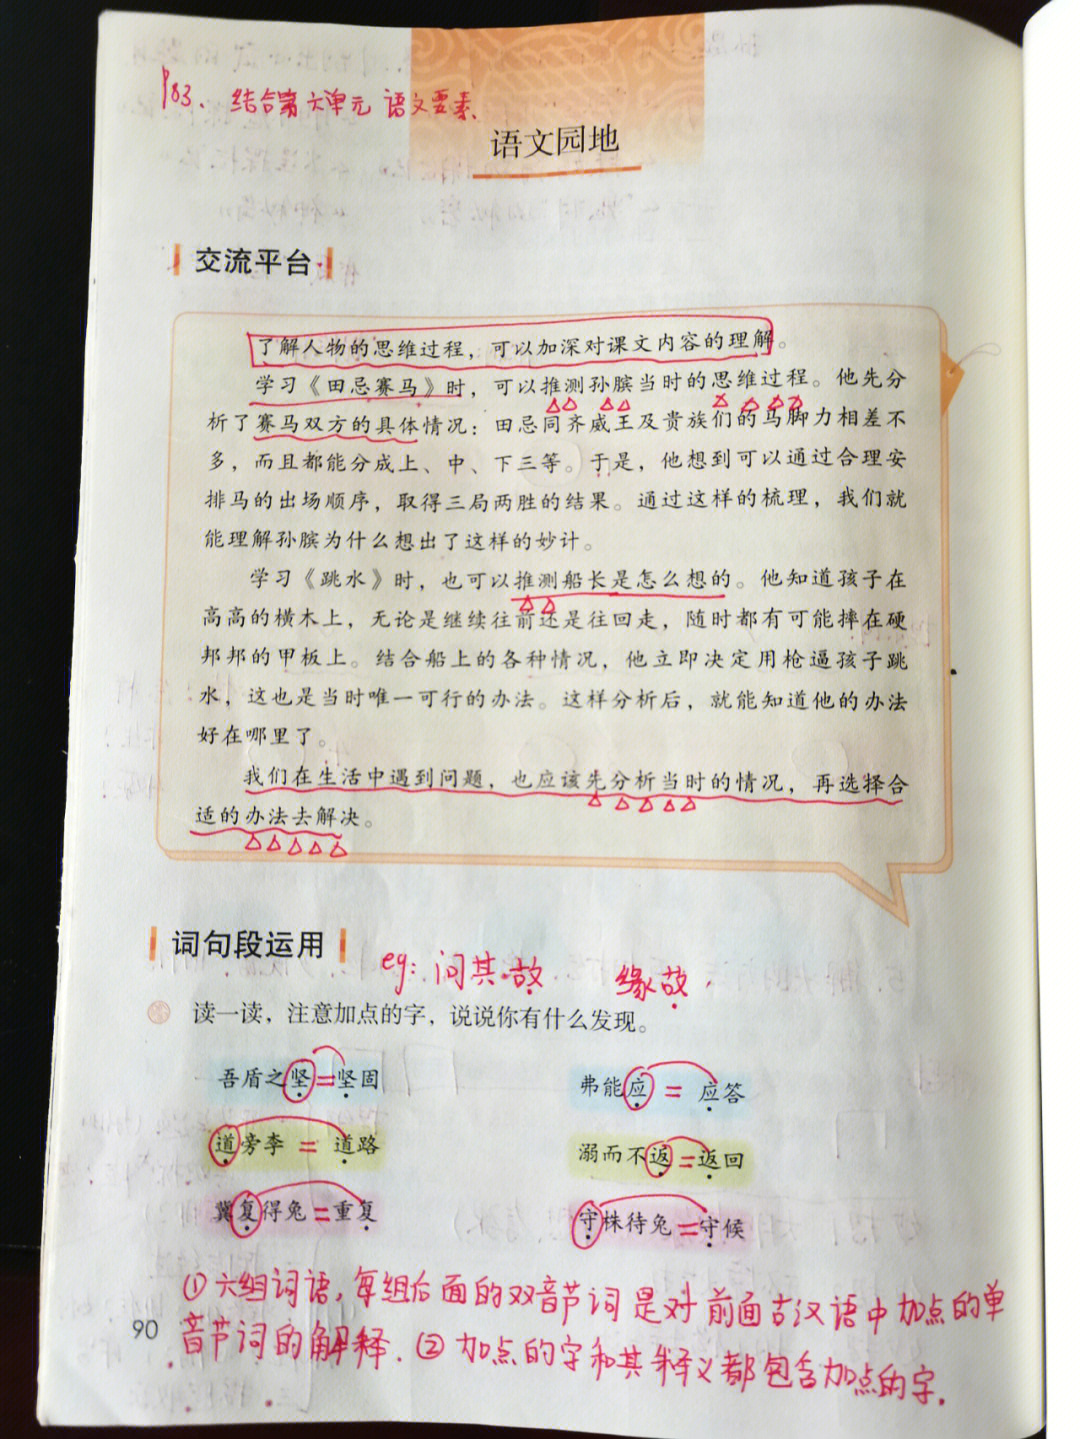 P83. 结合第六单元 语文要素.
语文园地
交流平台
了解人物的思维过程，可以加深对课文内容的理解。
学习《田忌赛马》时，可以推测孙膑当时的思维过程。他先分
析了赛马双方的具体情况：田忌同齐威王及贵族们的马脚力相差不
多，而且都能分成上、中、下三等。于是，他想到可以通过合理安
排马的出场顺序，取得三局两胜的结果。通过这样的梳理，我们就
能理解孙膑为什么想出了这样的妙计。
学习《跳水》时，也可以推测船长是怎么想的。他知道孩子在
高高的横木上，无论是继续往前还是往回走，随时都有可能摔在硬
邦邦的甲板上。结合船上的各种情况，他立即决定用枪逼孩子跳
水，这也是当时唯一可行的办法。这样分析后，就能知道他的办法
好在哪里了。
我们在生活中遇到问题，也应该先分析当时的情况，再选择合
适的办法去解决。
词句段运用
eg: 问其故 缘故
读一读，注意加点的字，说说你有什么发现。
吾盾之坚=坚固 弗能应=应答
道旁李=道路 溺而不返=返回
冀复得兔=重复 守株待兔=守候
①六组词语，每组后面的双音节词是对前面古汉语中加点的单
音节词的解释. ②加点的字和其释义都包含加点的字.
90